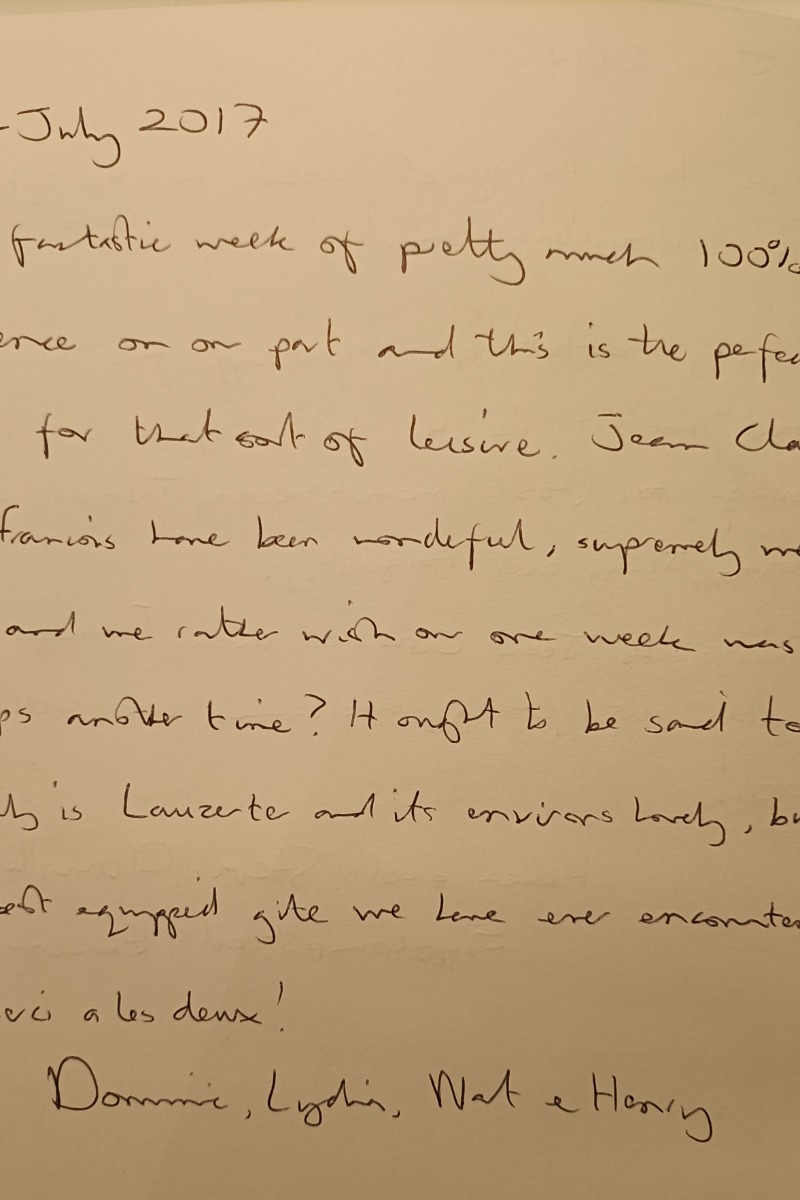 - July 2017
fantastic week of pretty much 100%
ence on our part and this is the perfec
for that sort of leisure. Jean Cla
Francois have been wonderful, supremely we
and we rather wish our one week was
ps another time? It ought to be said to
ly is Lauzerte and its environs lovely, bu
est equipped gite we have ever encounte
erci a les deux!
Dominic, Lydia, Nat & Henry